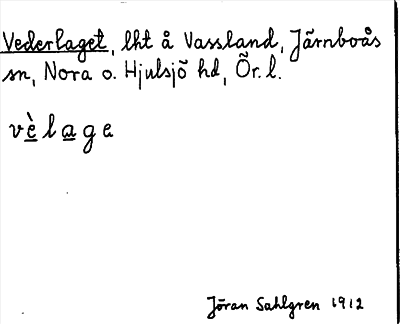 Vederlaget, lht å Vassland, Järnboås
sn, Nora o. Hjulsjö hd, Ör. l.
vèlage
Jöran Sahlgren 1912